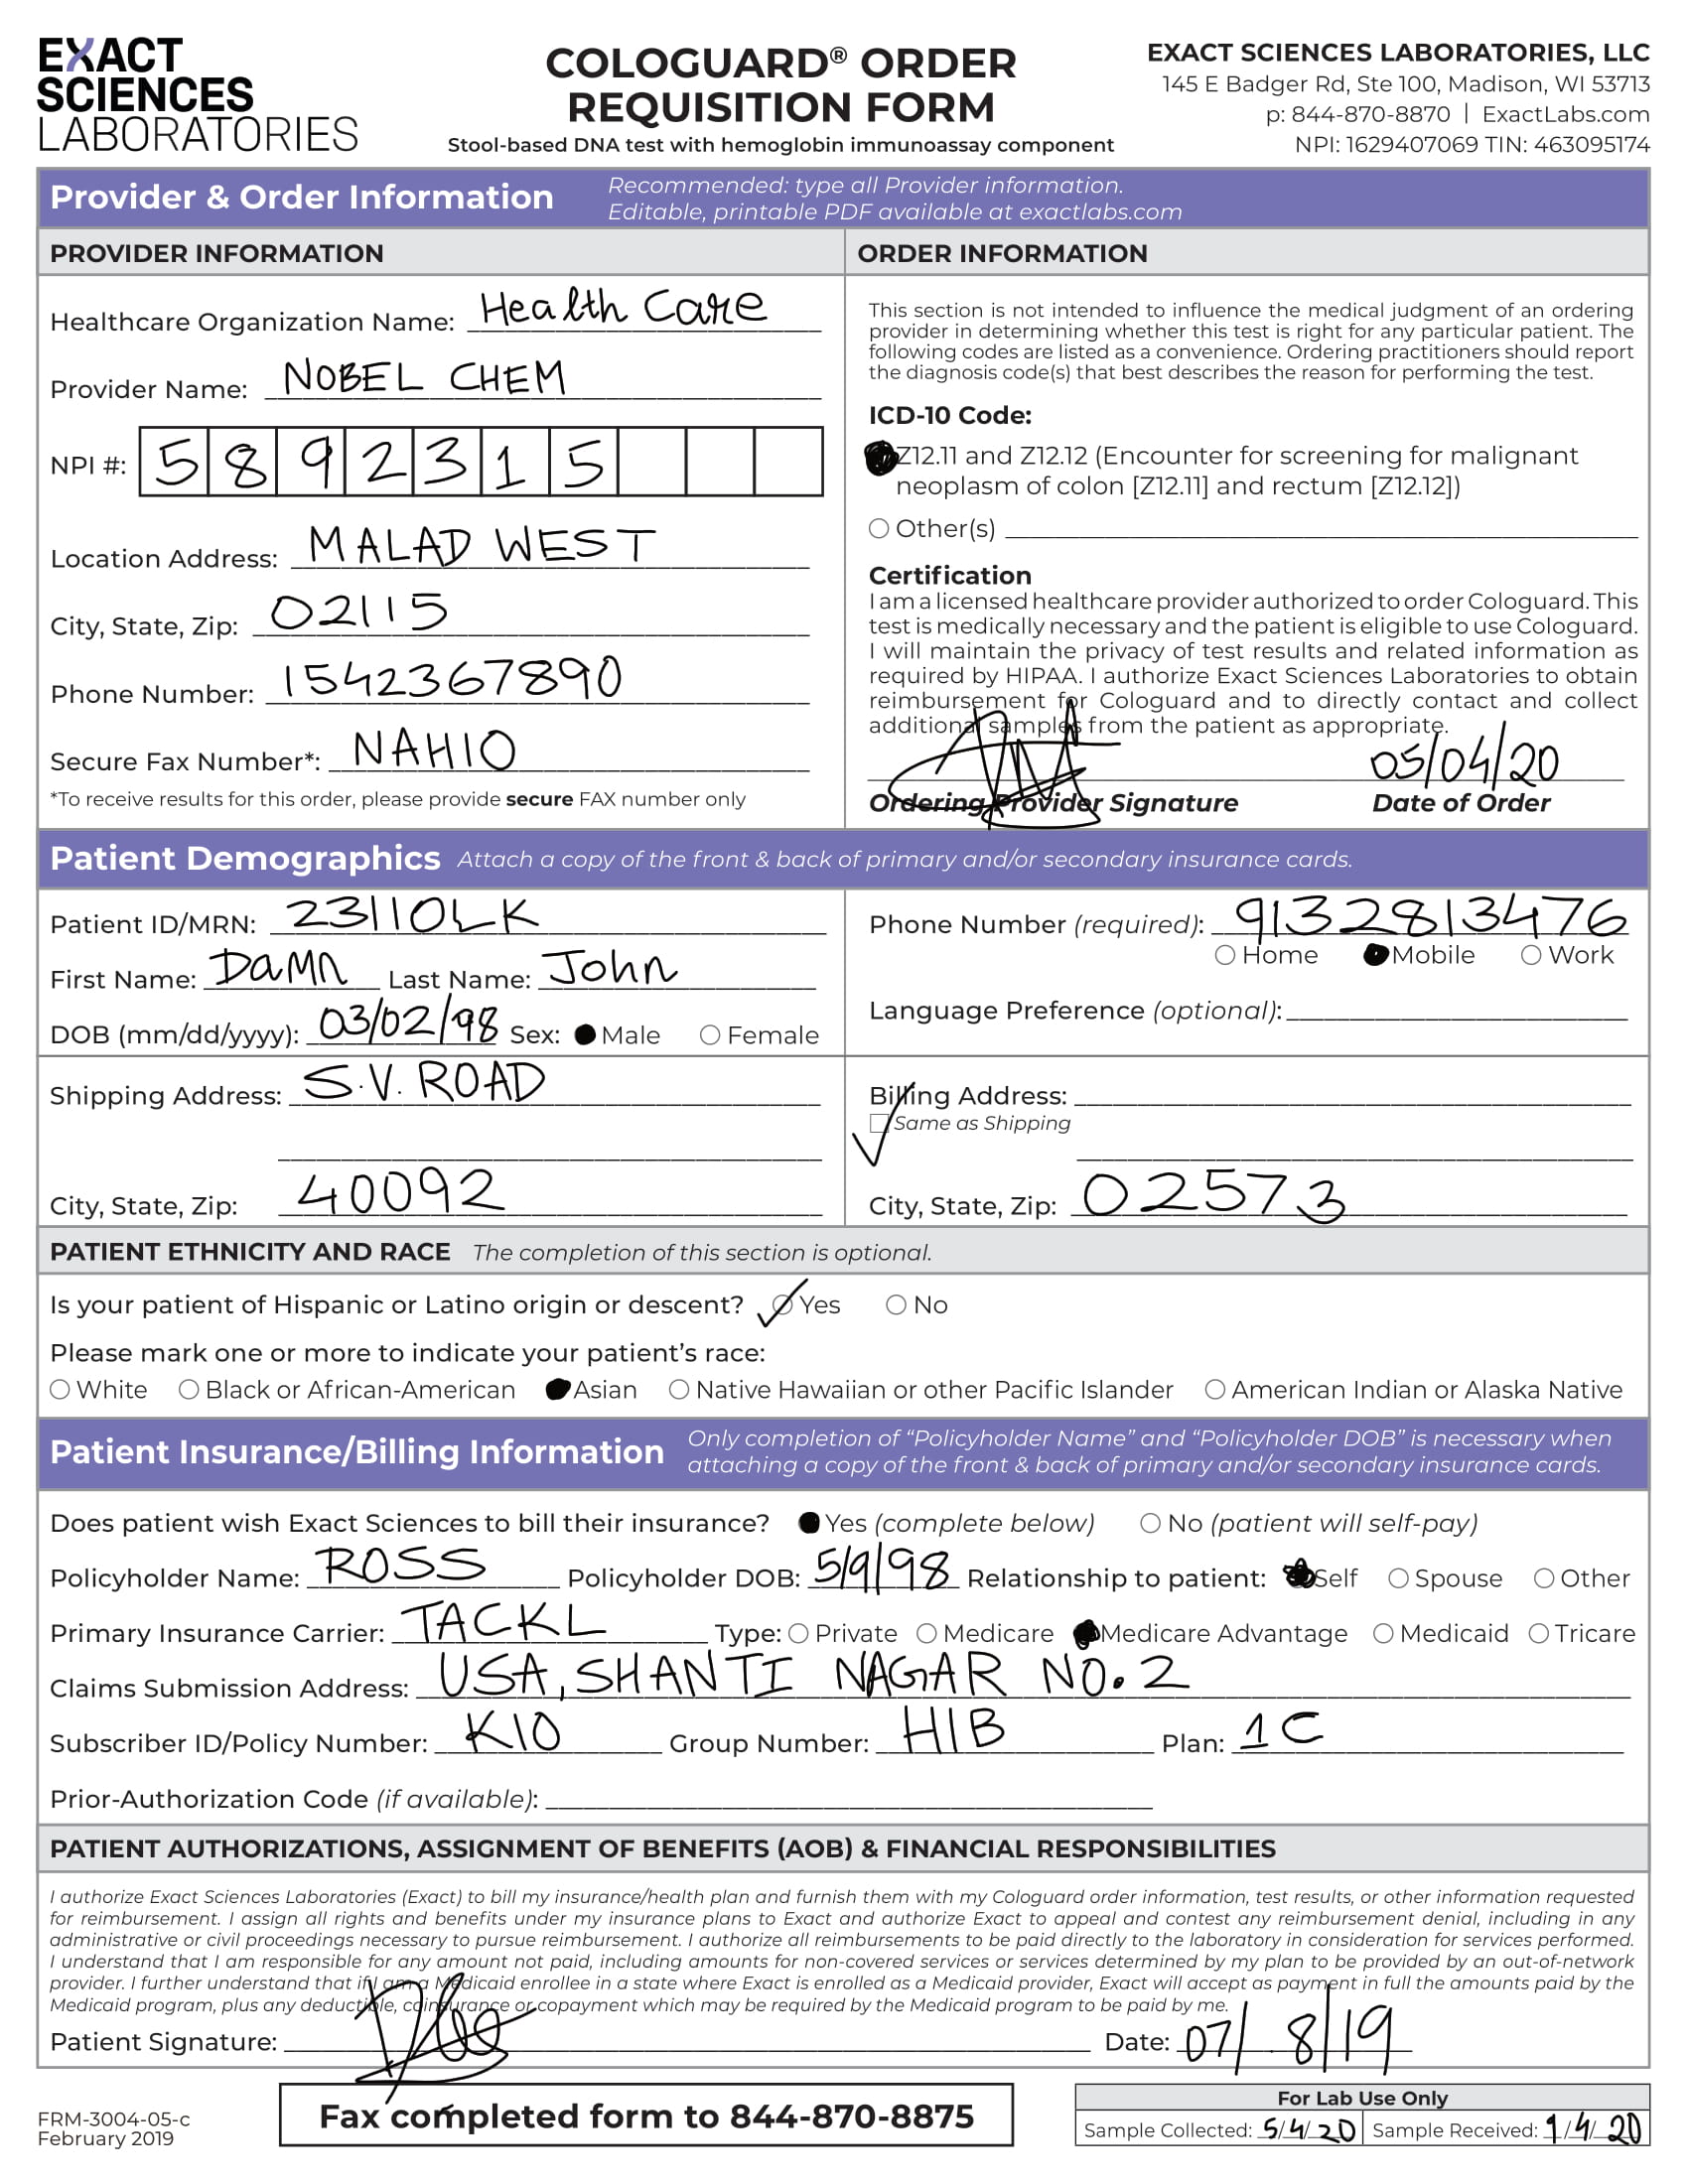 EXACT
SCIENCES
LABORATORIES
COLOGUARD® ORDER
REQUISITION FORM
Stool-based DNA test with hemoglobin immunoassay component
EXACT SCIENCES LABORATORIES, LLC
145 E Badger Rd, Ste 100, Madison, WI 53713
p: 844-870-8870 | ExactLabs.com
NPI: 1629407069 TIN: 463095174
Provider & Order Information
Recommended: type all Provider information.
Editable, printable PDF available at exactlabs.com
PROVIDER INFORMATION
Healthcare Organization Name: Health Care
Provider Name: NOBEL CHEM
NPI #: 5 8 9 2 3 1 5
Location Address: MALAD WEST
City, State, Zip: 02115
Phone Number: 1542367890
Secure Fax Number*: NAHIO
*To receive results for this order, please provide secure FAX number only
ORDER INFORMATION
This section is not intended to influence the medical judgment of an ordering
provider in determining whether this test is right for any particular patient. The
following codes are listed as a convenience. Ordering practitioners should report
the diagnosis code(s) that best describes the reason for performing the test.
ICD-10 Code:
Z12.11 and Z12.12 (Encounter for screening for malignant
neoplasm of colon [Z12.11] and rectum [Z12.12])
Other(s)
Certification
I am a licensed healthcare provider authorized to order Cologuard. This
test is medically necessary and the patient is eligible to use Cologuard.
I will maintain the privacy of test results and related information as
required by HIPAA. I authorize Exact Sciences Laboratories to obtain
reimbursement for Cologuard and to directly contact and collect
additional samples from the patient as appropriate.
05/04/20
Ordering Provider Signature Date of Order
Patient Demographics Attach a copy of the front & back of primary and/or secondary insurance cards.
Patient ID/MRN: 23110LK
First Name: DaMn Last Name: John
DOB (mm/dd/yyyy): 03/02/98 Sex: Male Female
Phone Number (required): 9132813476
Home Mobile Work
Language Preference (optional):
Shipping Address: S.V. ROAD
City, State, Zip: 40092
Billing Address:
Same as Shipping
City, State, Zip: 02573
PATIENT ETHNICITY AND RACE The completion of this section is optional.
Is your patient of Hispanic or Latino origin or descent? Yes No
Please mark one or more to indicate your patient's race:
White Black or African-American Asian Native Hawaiian or other Pacific Islander American Indian or Alaska Native
Patient Insurance/Billing Information
Only completion of "Policyholder Name" and "Policyholder DOB" is necessary when
attaching a copy of the front & back of primary and/or secondary insurance cards.
Does patient wish Exact Sciences to bill their insurance? Yes (complete below) No (patient will self-pay)
Policyholder Name: ROSS Policyholder DOB: 5/9/98 Relationship to patient: Self Spouse Other
Primary Insurance Carrier: TACKL Type: Private Medicare Medicare Advantage Medicaid Tricare
Claims Submission Address: USA, SHANTI NAGAR NO. 2
Subscriber ID/Policy Number: K10 Group Number: HIB Plan: 1C
Prior-Authorization Code (if available):
PATIENT AUTHORIZATIONS, ASSIGNMENT OF BENEFITS (AOB) & FINANCIAL RESPONSIBILITIES
I authorize Exact Sciences Laboratories (Exact) to bill my insurance/health plan and furnish them with my Cologuard order information, test results, or other information requested
for reimbursement. I assign all rights and benefits under my insurance plans to Exact and authorize Exact to appeal and contest any reimbursement denial, including in any
administrative or civil proceedings necessary to pursue reimbursement. I authorize all reimbursements to be paid directly to the laboratory in consideration for services performed.
I understand that I am responsible for any amount not paid, including amounts for non-covered services or services determined by my plan to be provided by an out-of-network
provider. I further understand that if I am a Medicaid enrollee in a state where Exact is enrolled as a Medicaid provider, Exact will accept as payment in full the amounts paid by the
Medicaid program, plus any deductible, coinsurance or copayment which may be required by the Medicaid program to be paid by me.
Patient Signature: Date: 07/8/19
FRM-3004-05-c
February 2019
Fax completed form to 844-870-8875
For Lab Use Only
Sample Collected: 5/4/20 Sample Received: 1/4/20